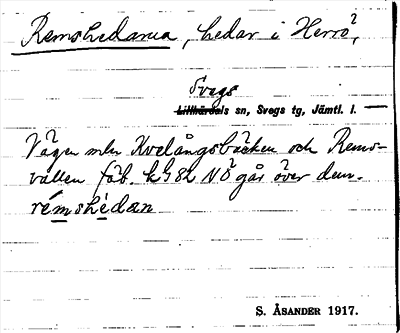 Remshedarna, hedar i Herrö?,
Svegs
Lillhärdals sn, Svegs tg, Jämtl. l. —
Vägen mln Kvelångsbäcken och Rems-
vallen fäb. kG 82 NÖ går över dem.
rémshèdan
S. ÅSANDER 1917.